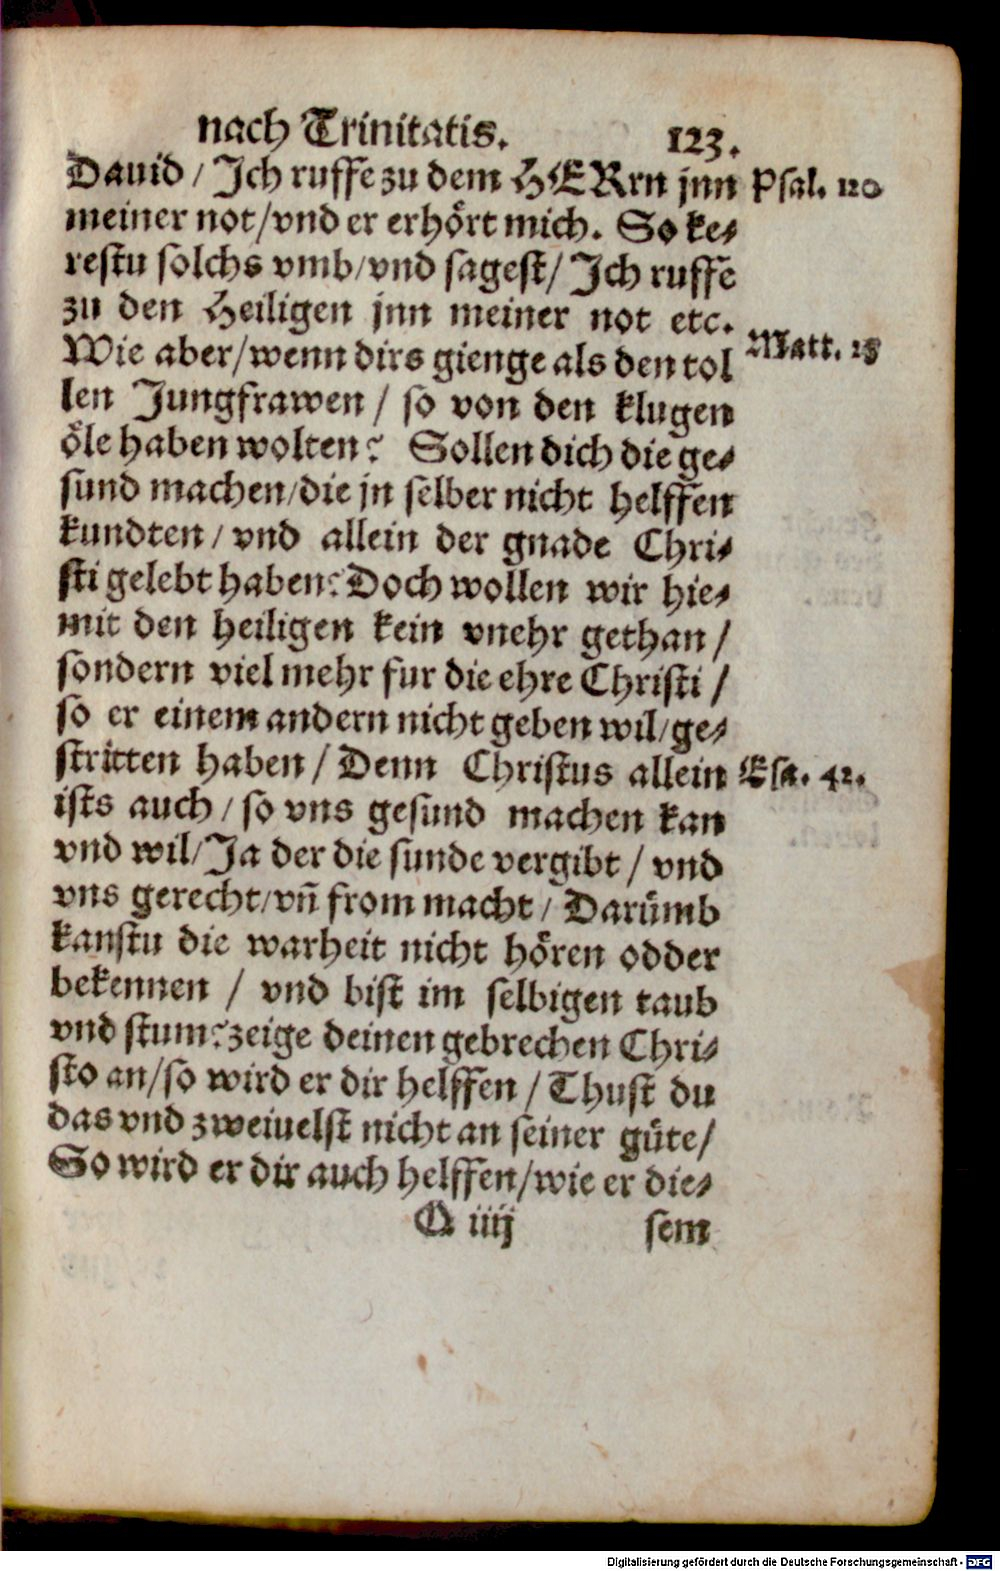 nach Trinitatis. 123.
Dauid / Ich ruffe zu dem HERrn jnn Psal. 120
meiner not / vnd er erhört mich. So ke⸗
restu solchs vmb / vnd sagest / Ich ruffe
zu den Heiligen jnn meiner not etc.
Wie aber / wenn dirs gienge als den tol Matt. 25
len Jungfrawen / so von den klugen
öle haben wolten? Sollen dich die ge⸗
sund machen / die jn selber nicht helffen
kundten / vnd allein der gnade Chri⸗
sti gelebt haben? Doch wollen wir hie⸗
mit den heiligen kein vnehr gethan /
sondern viel mehr fur die ehre Christi /
so er einem andern nicht geben wil / ge⸗
stritten haben / Denn Christus allein Esa. 42.
ists auch / so vns gesund machen kan
vnd wil / Ja der die sunde vergibt / vnd
vns gerecht / vñ from macht / Darümb
kanstu die warheit nicht hören odder
bekennen / vnd bist im selbigen taub
vnd stum? zeige deinen gebrechen Chri⸗
sto an / so wird er dir helffen / Thust du
das vnd zweiuelst nicht an seiner güte /
So wird er dir auch helffen / wie er die⸗
Q iiij sem
Digitalisierung gefördert durch die Deutsche Forschungsgemeinschaft - DFG